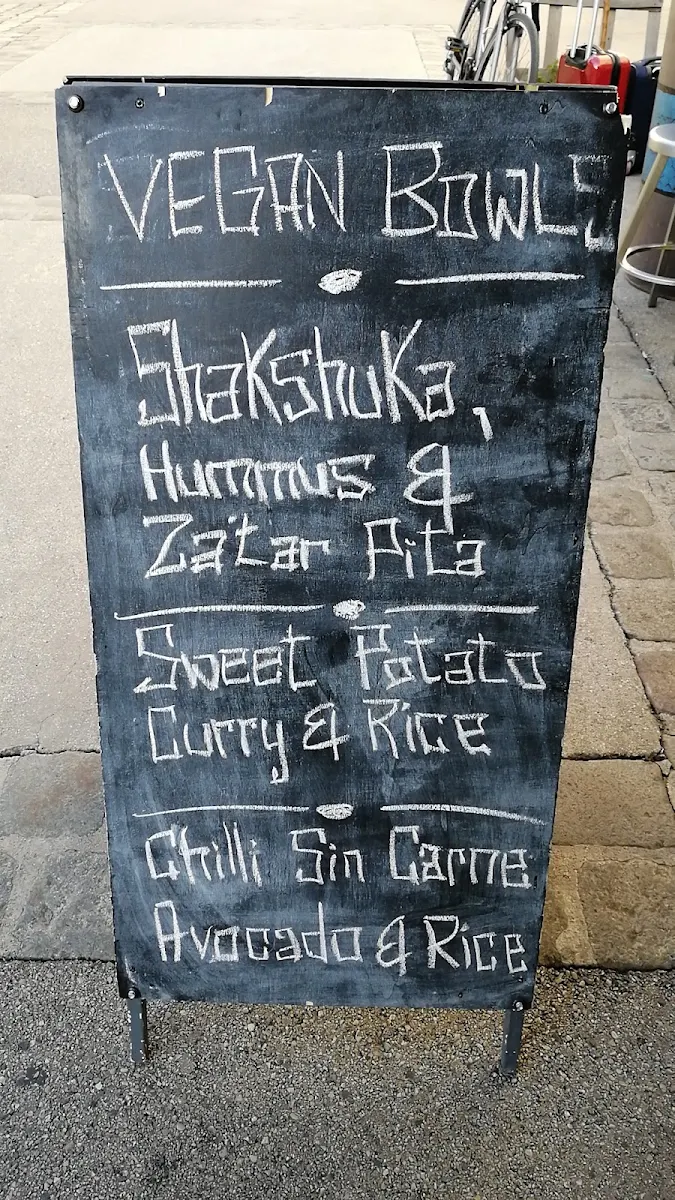 VEGAN BOWLS
Shakshuka,
Hummus &
Za'tar Pita
Sweet Potato
Curry & Rice
Chilli Sin Carne
Avocado & Rice